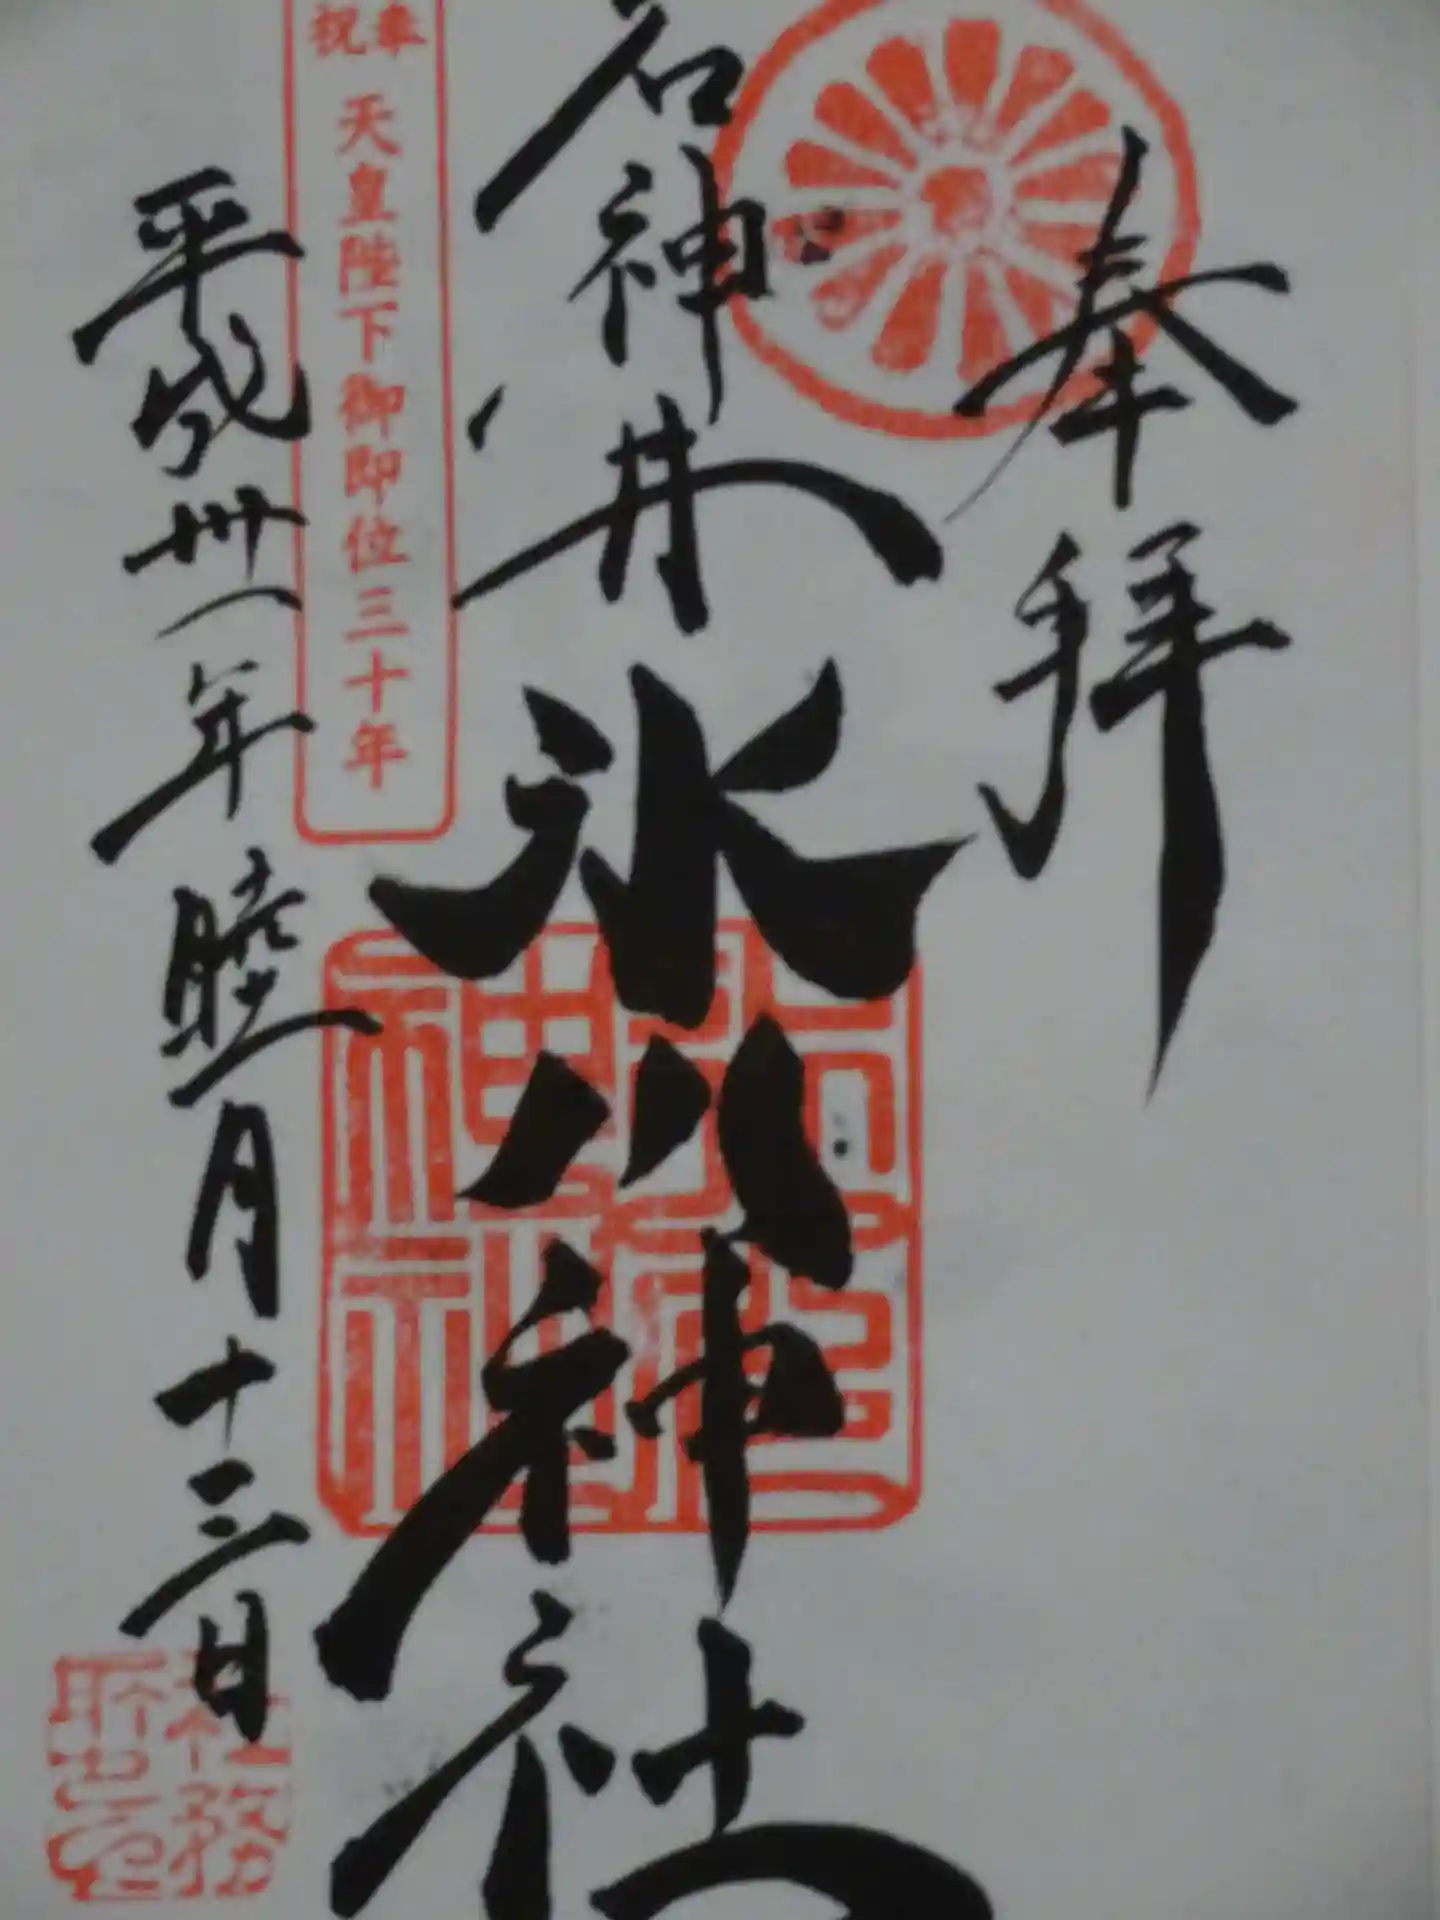 奉拝
石神井
氷川神社
奉祝 天皇陛下御即位三十年
平成卅一年睦月十三日
社務